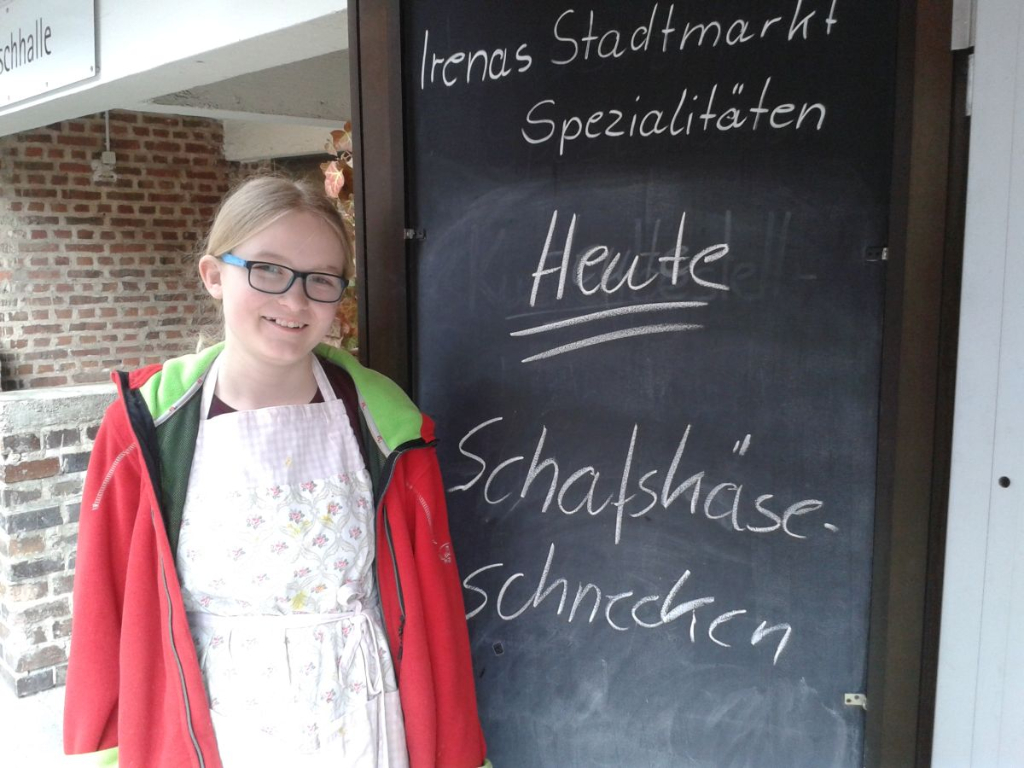 schhalle
Irenas Stadtmarkt
Spezialitäten
Heute
Schafskäse-
schnecken